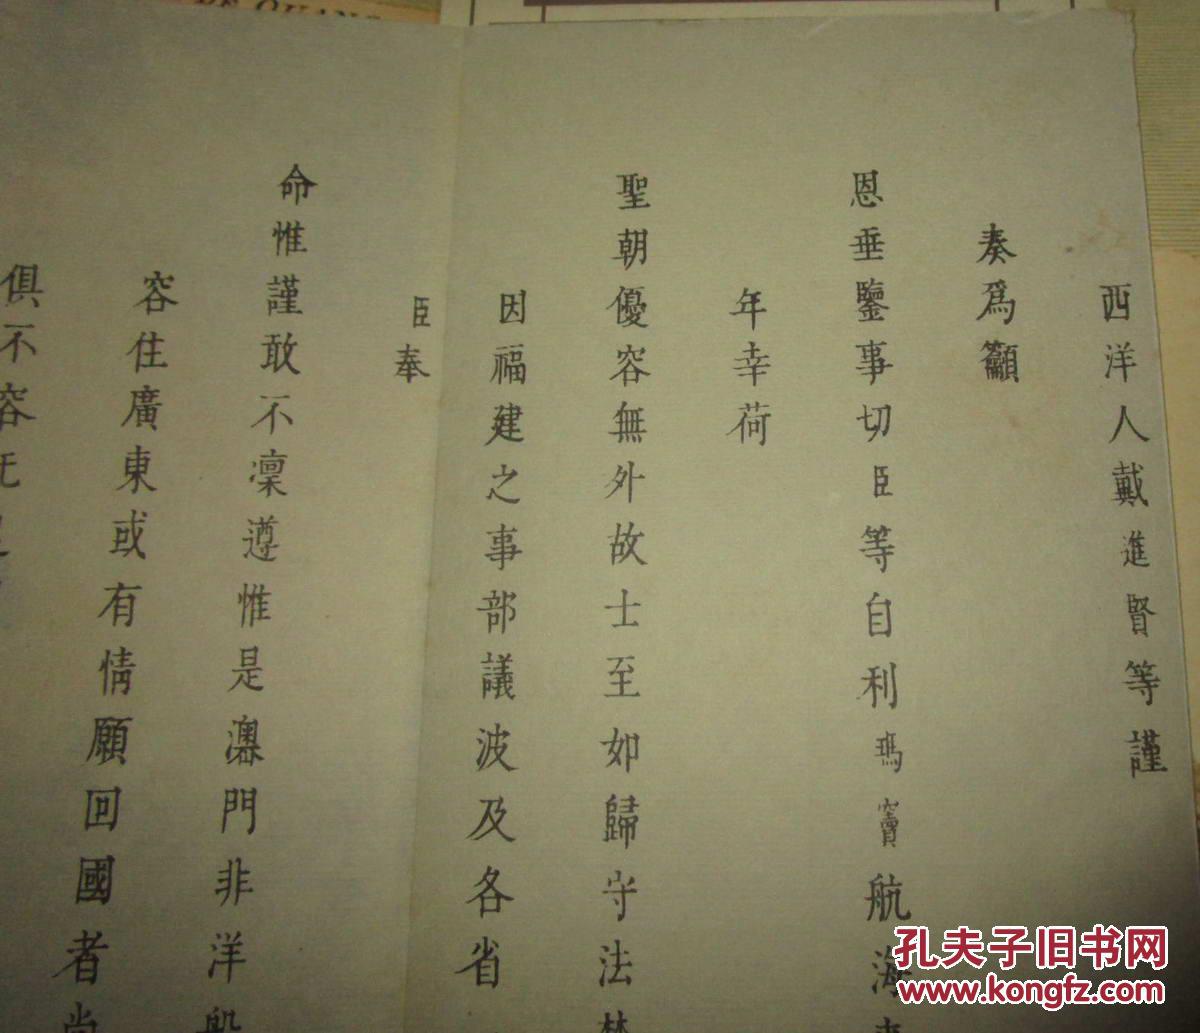 西洋人戴進賢等謹
奏爲籲
恩垂鑒事切臣等自利瑪竇航海
年幸荷
聖朝優容無外故士至如歸守法
因福建之事部議波及各省
臣奉
命惟謹敢不凜遵惟是澳門非洋
容住廣東或有情願回國者尚
俱不容
孔夫子旧书网
www.kongfz.com